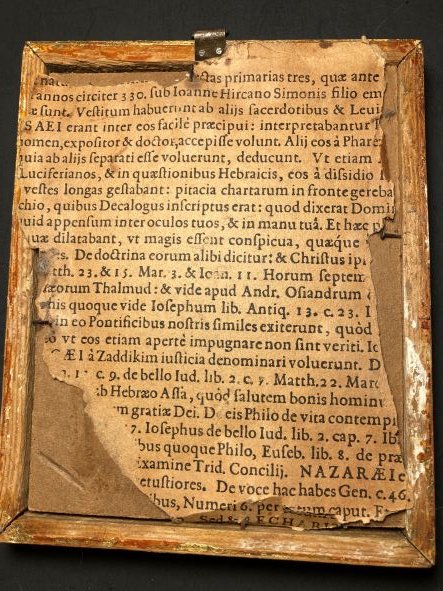 ctas primarias tres, quæ ante
annos circiter 330. sub Ioanne Hircano Simonis filio em
æ sunt. Vestitum habuerunt ab alijs sacerdotibus & Leui
SAEI erant inter eos facilè præcipui: interpretabantur
omen, expositor & doctor, accepisse volunt. Alij eos à Phare
quia ab alijs separati esse voluerunt, deducunt. Vt etiam
Luciferianos, & in quæstionibus Hebraicis, eos à dissidio
vestes longas gestabant: pitacia chartarum in fronte gereba
chio, quibus Decalogus inscriptus erat: quod dixerat Domi
uid appensum inter oculos tuos, & in manu tuâ. Et hæc p
uæ dilatabant, vt magis essent conspicua, quæque
s. De doctrina eorum alibi dicitur: & Christus ip
tth. 23. & 15. Mar. 3. & Ioan. 11. Horum septem
æorum Thalmud: & vide apud Andr. Osiandrum
nis quoque vide Iosephum lib. Antiq. 13. c. 23. I
in eo Pontificibus nostris similes exiterunt, quòd
vt eos etiam apertè impugnare non sint veriti. Io
ÆI à Zaddikim iusticia denominari voluerunt. D
c. 9. de bello Iud. lib. 2. c. 7. Matth. 22. Marc
b Hebræo Assa, quòd salutem bonis homin
m gratiæ Dei. De eis Philo de vita contemp
7. Iosephus de bello Iud. lib. 2. cap. 7. Ib
ibus quoque Philo, Euseb. lib. 8. de præ
xamine Trid. Concilij. NAZARÆI e
etustiores. De voce hac habes Gen. c. 46.
ibus, Numeri 6. per totum caput. E
ECHABI